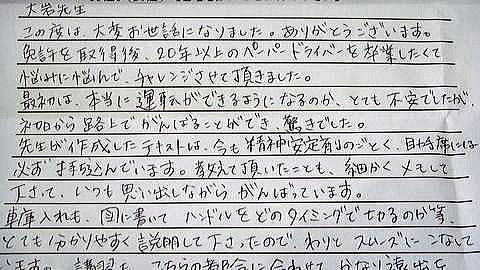 大岩先生
この度は、大変お世話になりました。ありがとうございます。
免許を取得後、20年以上のペーパードライバーを卒業したくて
悩みに悩んで、チャレンジさせて頂きました。
最初は、本当に運転ができるようになるのか、とても不安でしたが、
初日から路上でがんばることができ、驚きでした。
先生が作成したテキストは、今も精神安定剤のごとく、助手席には
必ず持ち込んでいます。教えて頂いたことも、細かくメモして
下さって、いつも思い出しながらがんばっています。
車庫入れも、図に書いてハンドルをどのタイミングできるのか等、
とても分かりやすく説明して下さったので、わりとスムーズにこなして
います。講習も、こちらの都合に合わせて、かなり遠出を